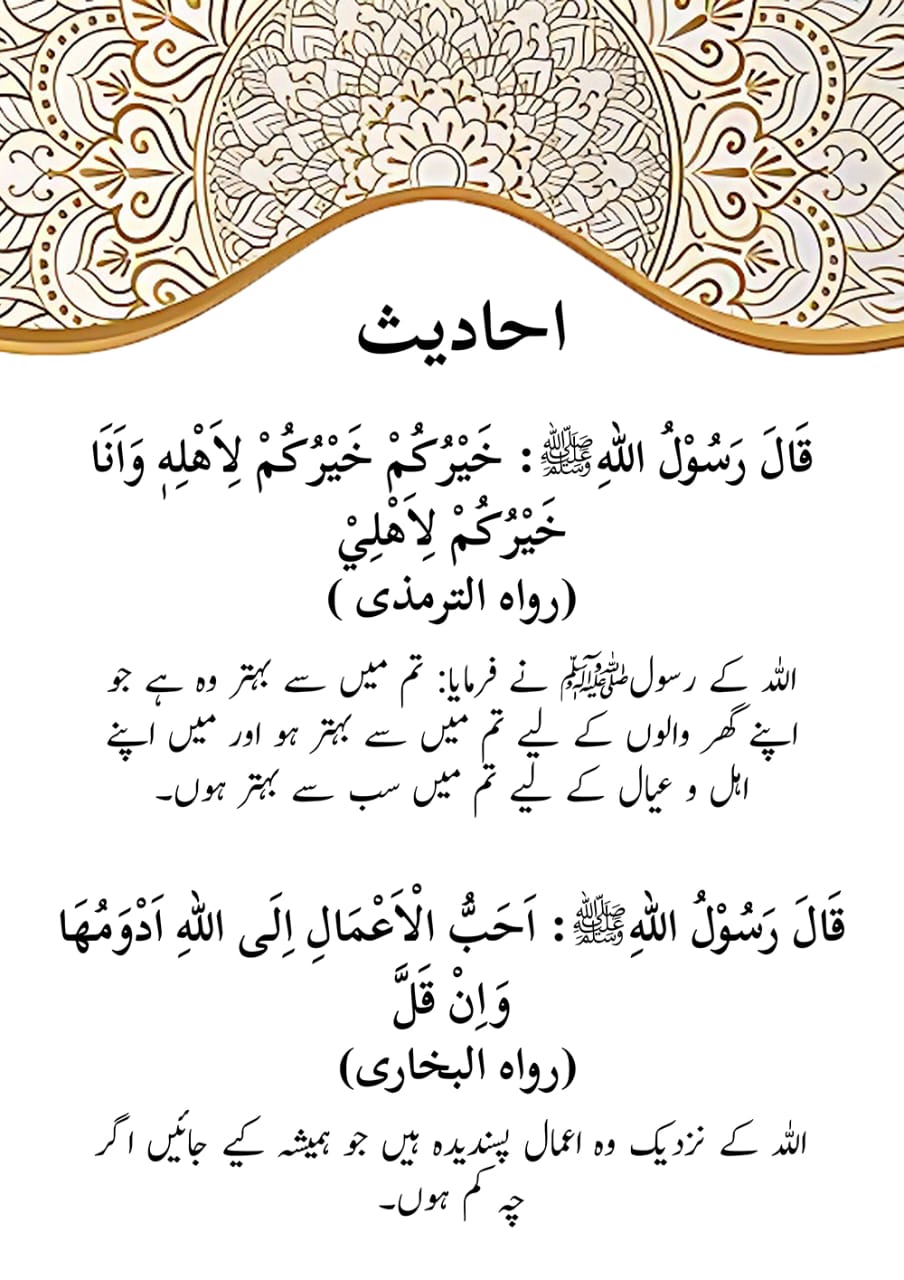 احادیث
قَالَ رَسُوْلُ اللهِﷺ: خَيْرُكُمْ خَيْرُكُمْ لِاَهْلِهٖ وَاَنَا
خَيْرُكُمْ لِاَهْلِيْ
(رواه الترمذی )
اللہ کے رسولﷺ نے فرمایا: تم میں سے بہتر وہ ہے جو
اپنے گھر والوں کے لیے تم میں سے بہتر ہو اور میں اپنے
اہل و عیال کے لیے تم میں سب سے بہتر ہوں۔
قَالَ رَسُوْلُ اللهِﷺ: اَحَبُّ الْاَعْمَالِ اِلَى اللهِ اَدْوَمُهَا
وَاِنْ قَلَّ
(رواه البخاری)
اللہ کے نزدیک وہ اعمال پسندیدہ ہیں جو ہمیشہ کیے جائیں اگر
چہ کم ہوں۔